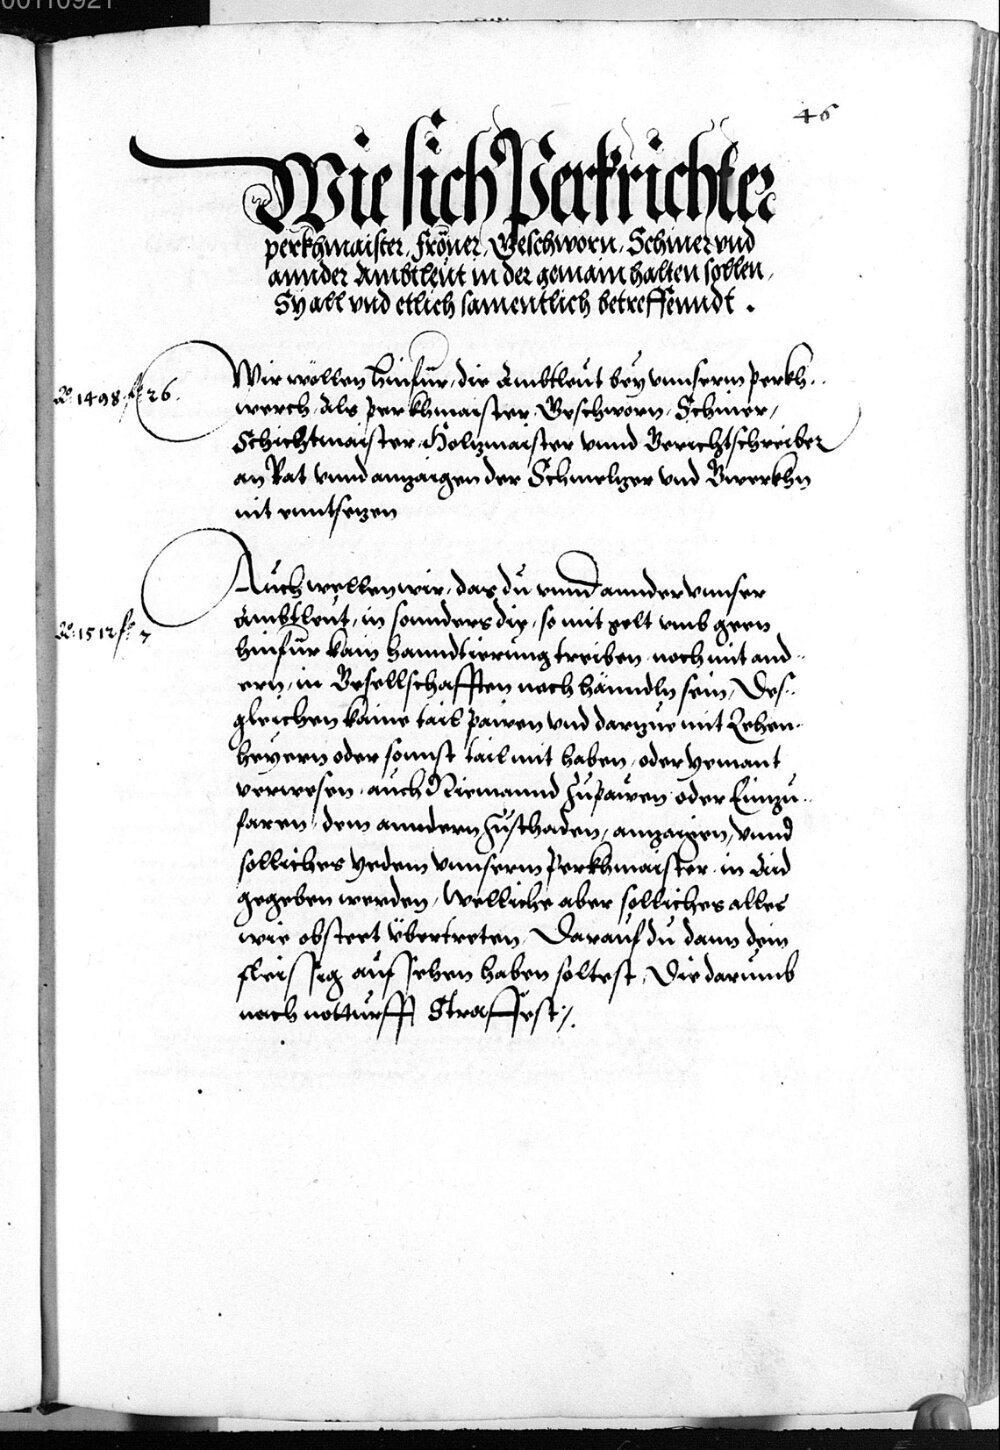 00110921
46
Wie sich Perkrichter
perkhmaister, fröner, Geschworn, Schiner vnd
annder Ambtleut in der gemain halten sollen,
Sy all vnd etlich samentlich betreffenndt.
Wir wöllen hinfür, die Ambtleut bey vnnserm perkh-
werch, als perkhmaister, Geschworn, Schiner,
Ao. 1498 26.
Schichtmaister, Holzmaister vnnd Gerichtschreiber
an Rat vnnd anzaigen der Schmelzer vnd Gwerkhn
nit enntsezen
Auch wellen wir, das du vnnd annder vnnser
Ambtleut, in sonnders die, so mit gelt vmb geen
Ao. 1512 7
hinfür kain hanndtierung treiben noch mit and-
ern, in Gesellschafften noch hänndln sein, Des-
gleichen kaine tail pawen vnd darzue mit Lehen-
heyern oder sonnst tail mit haben, oder yemant
verwesen, auch Niemannd zupawen oder Einzu-
faren, dem anndern zuschaden, anzaigen, vnnd
solliches yedem vnnserm Perkhmaister in Aid
gegeben werden, Welliche aber solliches alles
wie obsteet übertreten, Darauf du dann dein
fleissig aufsehen haben soltest, Die darumb
nach notturfft Straffest